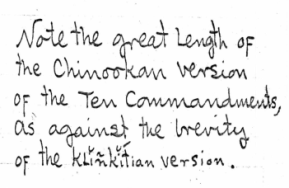 Note the great Length of
the Chinookan version
of the Ten Commandments,
as against the brevity
of the Klĭñkĭtĭan version.